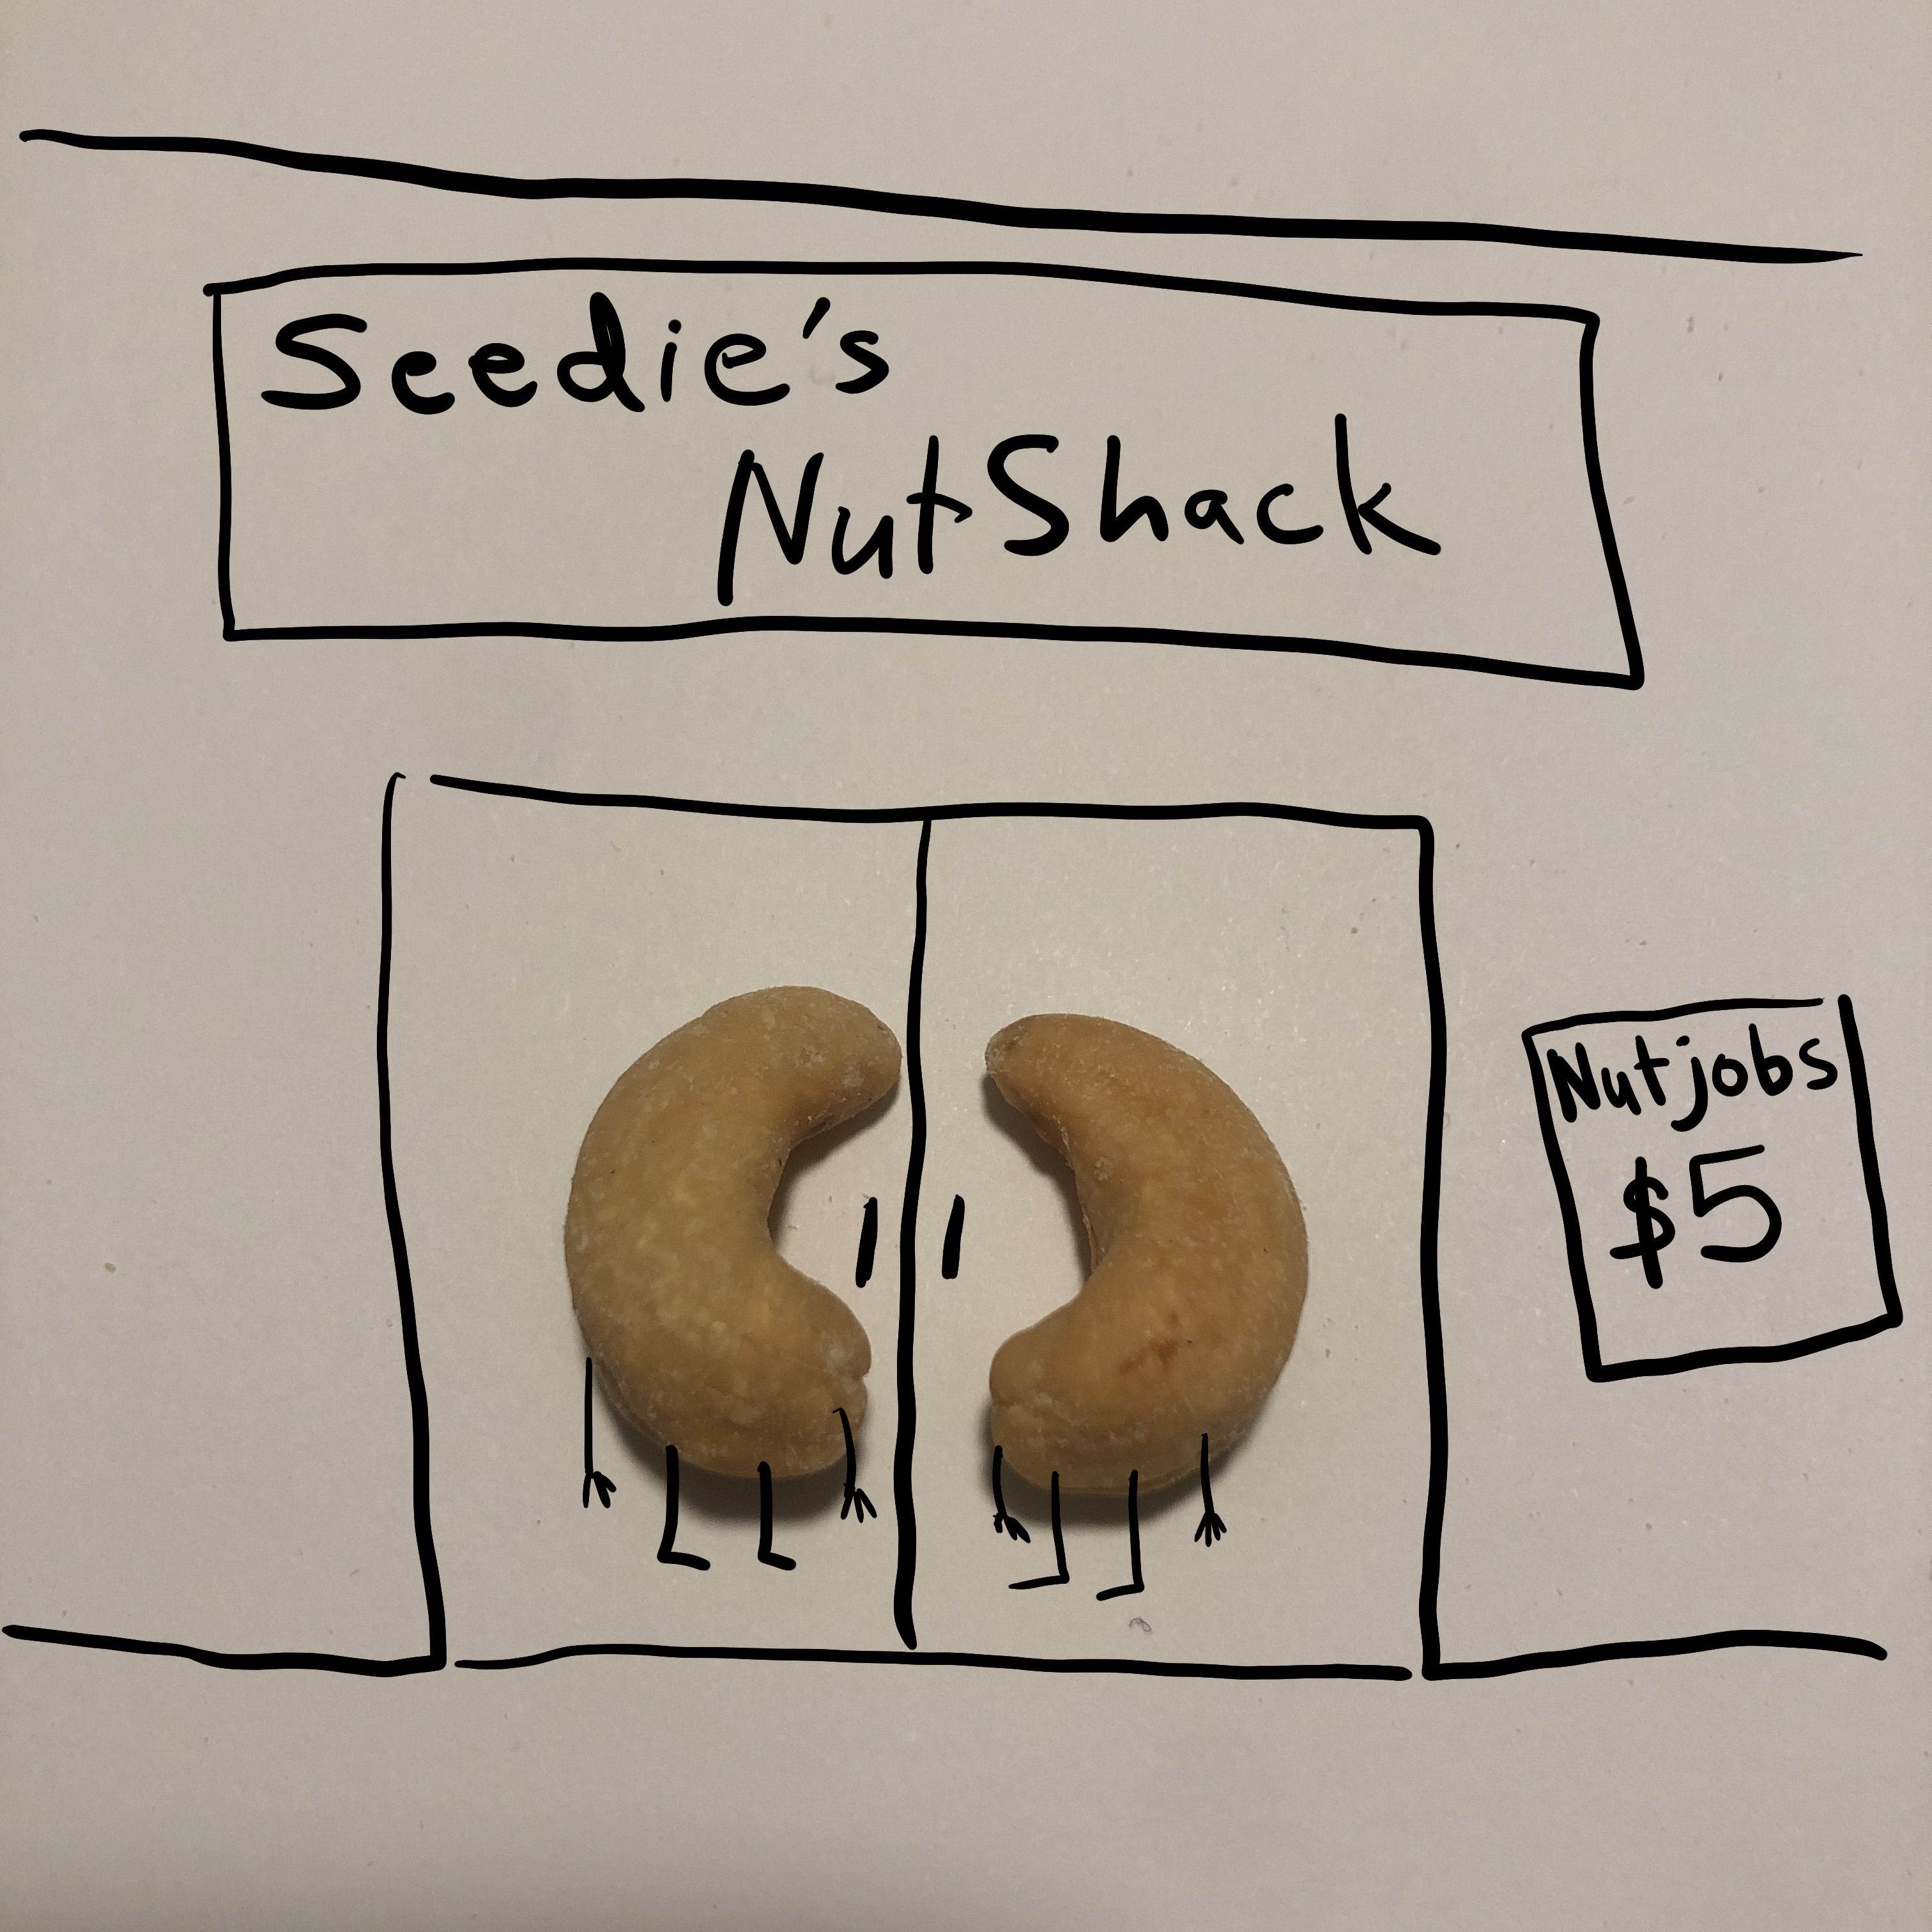 Seedie's
NutShack
Nutjobs
$5